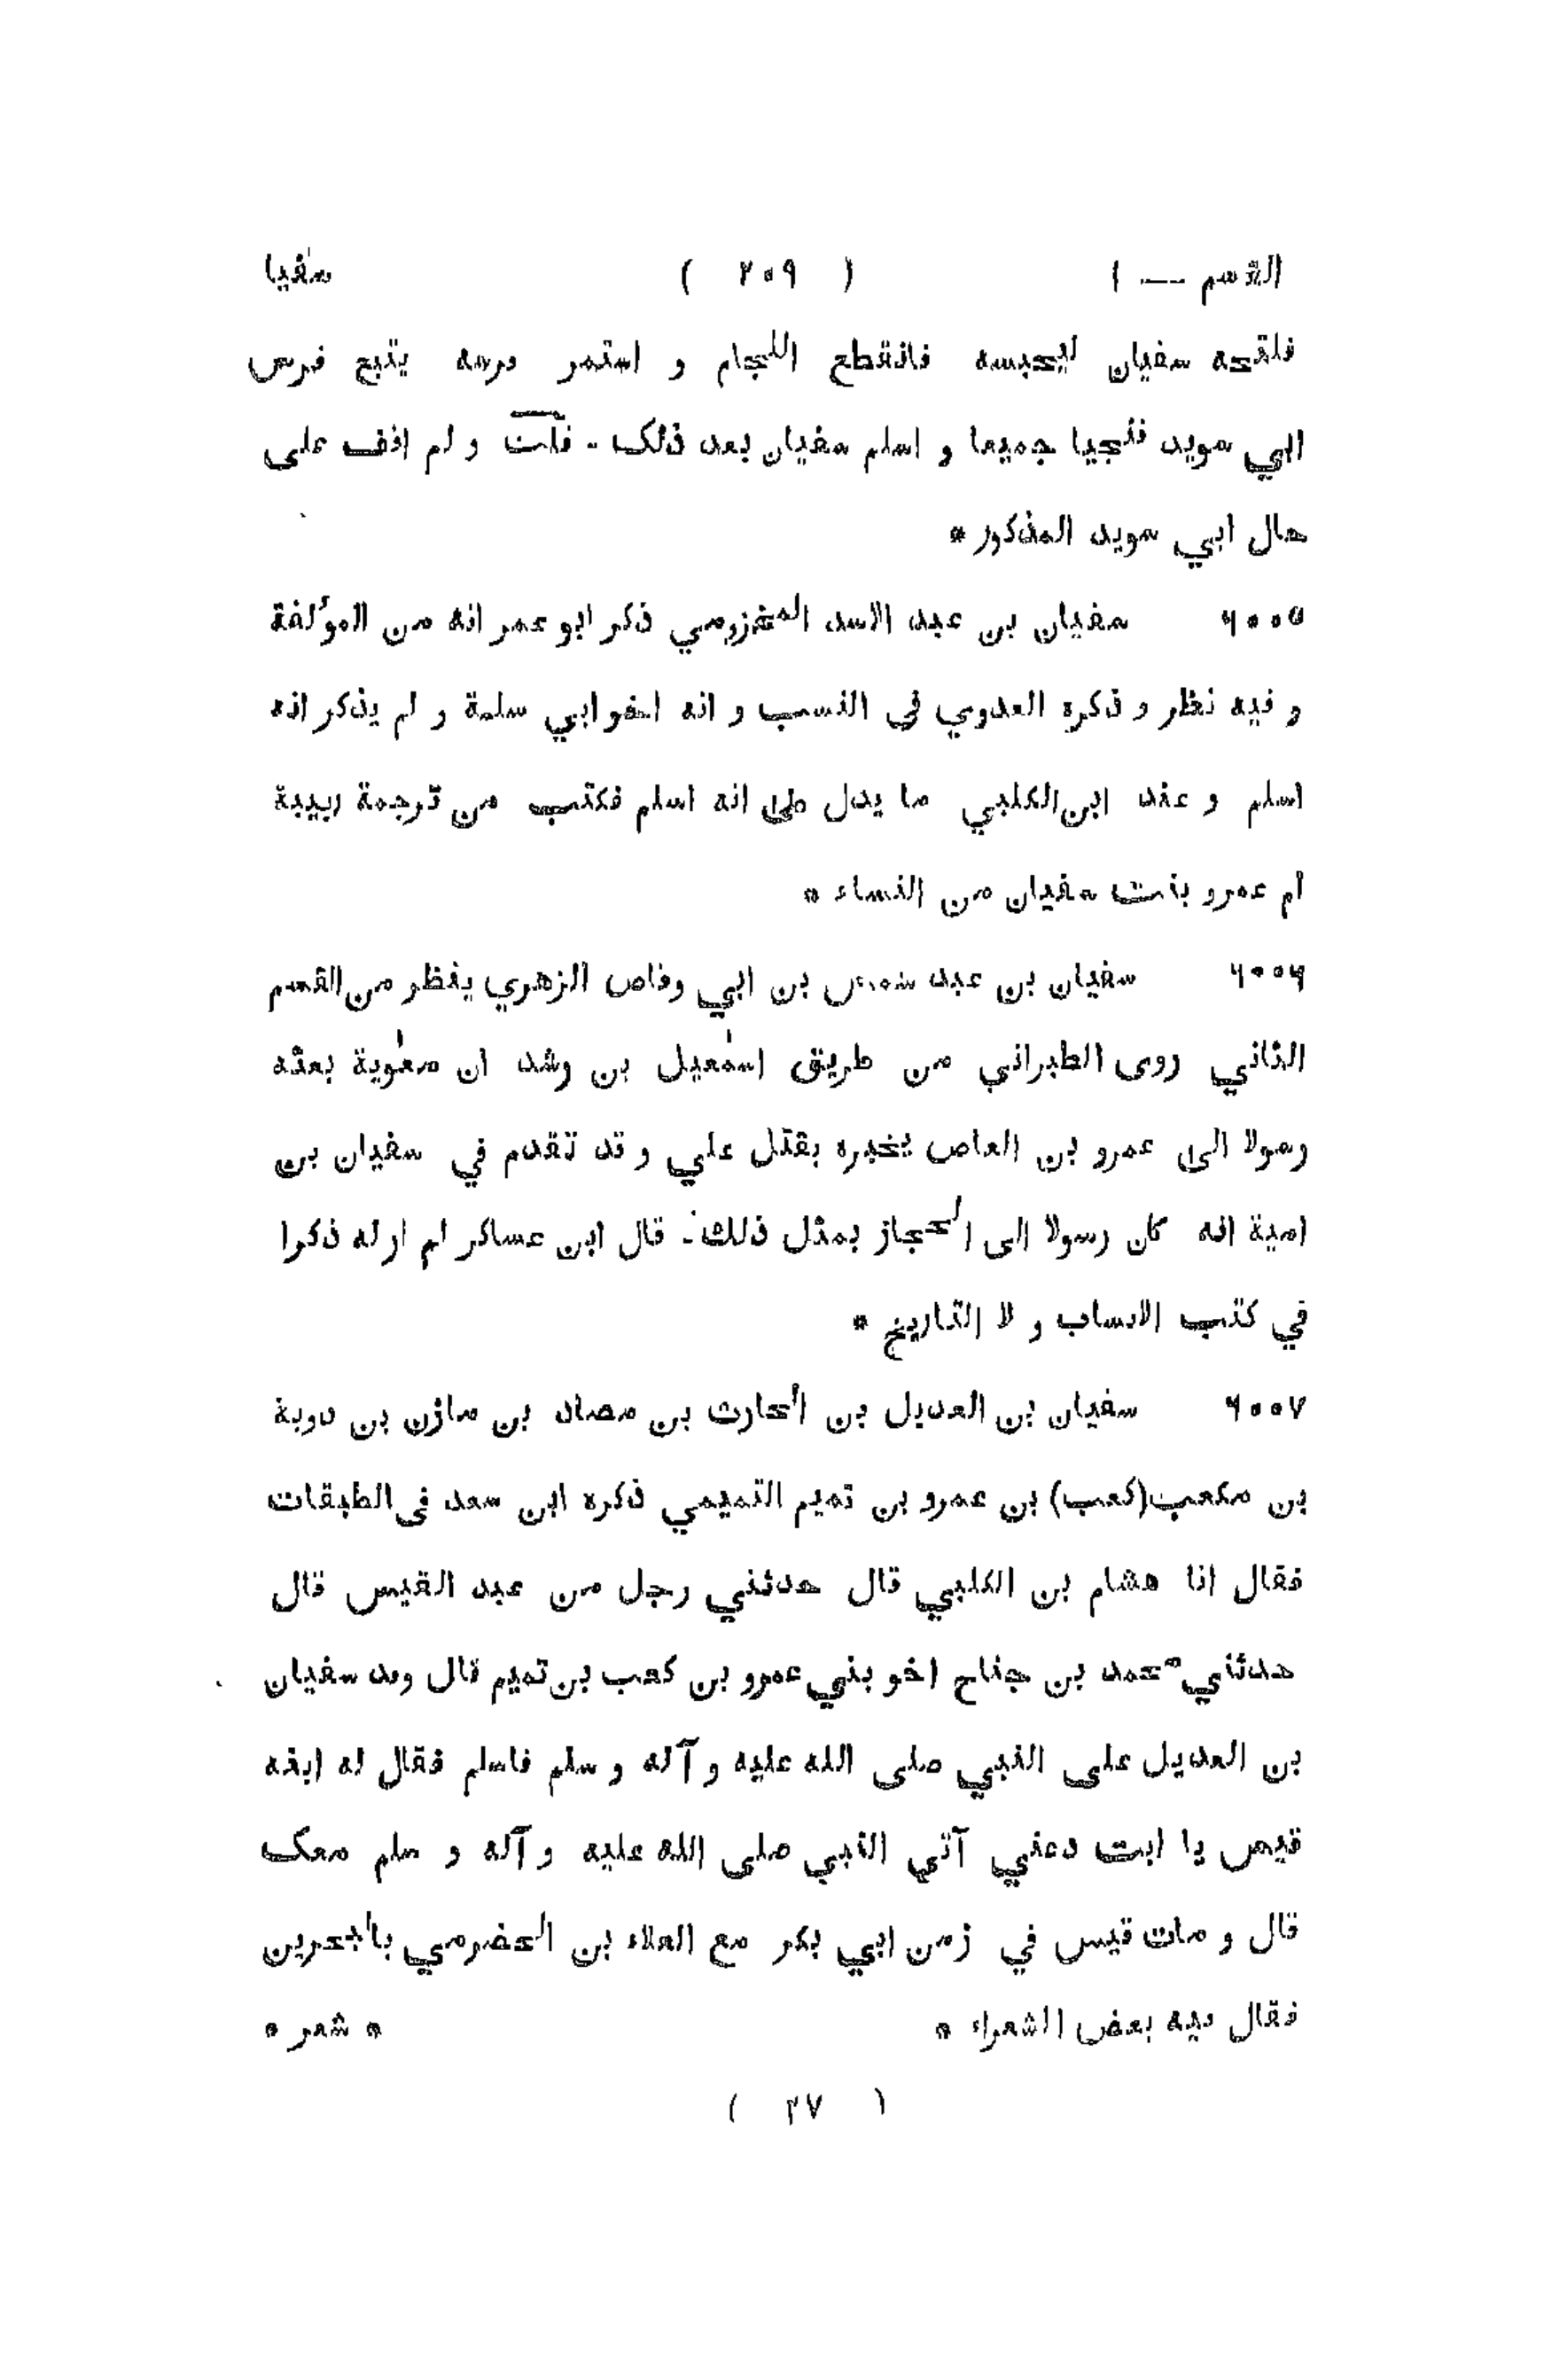 القسم — ١ ( ٢٠٩ ) سفيا
فلقحه سفيان ليحبسه فانقطع اللجام و استمر فرسه يتبع فرس
ابي سويد فنجيا جميعا و اسلم سفيان بعد ذلک - قلت و لم اقف على
حال ابي سويد المذكور *
٦٠٠٥ سفيان بن عبد الاسد المخزومي ذكر ابو عمر انه من المؤلفة
و فيه نظر و ذكره العدوي في النسب و انه اخو ابي سلمة و لم يذكر انه
اسلم و عند ابن الكلبي ما يدل على انه اسلم فكتب من ترجمة ربيبة
ام عمرو بنت سفيان من النساء *
٦٠٠٦ سفيان بن عبد شمس بن ابي وقاص الزهري ينظر من القسم
الثاني روى الطبراني من طريق اسمٰعيل بن رشد ان معٰوية بعثه
رسولا الى عمرو بن العاص يخبره بقتل علي و قد تقدم في سفيان بن
امية انه كان رسولا الى الحجاز بمثل ذلك - قال ابن عساكر لم ار له ذكرا
في كتب الانساب و لا التاريخ *
٦٠٠٧ سفيان بن العديل بن الحارث بن مصاد بن مازن بن دوبة
بن مكعب(كعب) بن عمرو بن تميم التميمي ذكره ابن سعد في الطبقات
فقال انا هشام بن الكلبي قال حدثني رجل من عبد القيس قال
حدثني محمد بن جناح اخو بني عمرو بن كعب بن تميم قال وفد سفيان
بن العديل على النبي صلى الله عليه و آله و سلم فاسلم فقال له ابنه
قيس يا ابت دعني آتي النبي صلى الله عليه و آله و سلم معک
قال و مات قيس في زمن ابي بكر مع العلاء بن الحضرمي بالبحرين
فقال فيه بعض الشعراء * * شعر *
( ٢٧ )